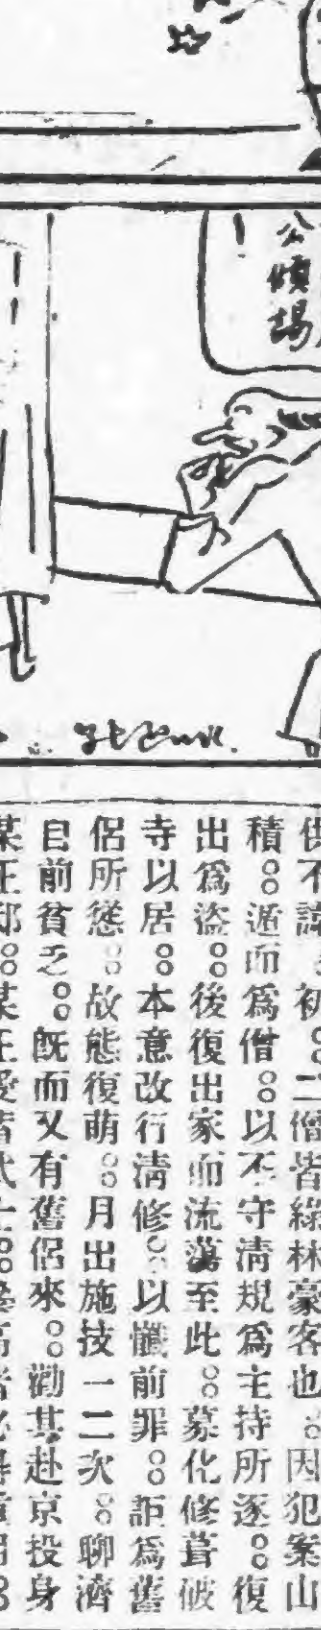 公憤場
！
供不諱。初。二僧皆綠林豪客也。因犯案山
積。遁而爲僧。以不守清規爲主持所逐。復
出爲盜。後復出家而流蕩至此。募化修葺破
寺以居。本意改行清修。以懺前罪。詎爲舊
侶所慫。故態復萌。月出施技一二次。聊濟
目前貧乏。旣而又有舊侶來。勸其赴京投身
某王邸。某王愛